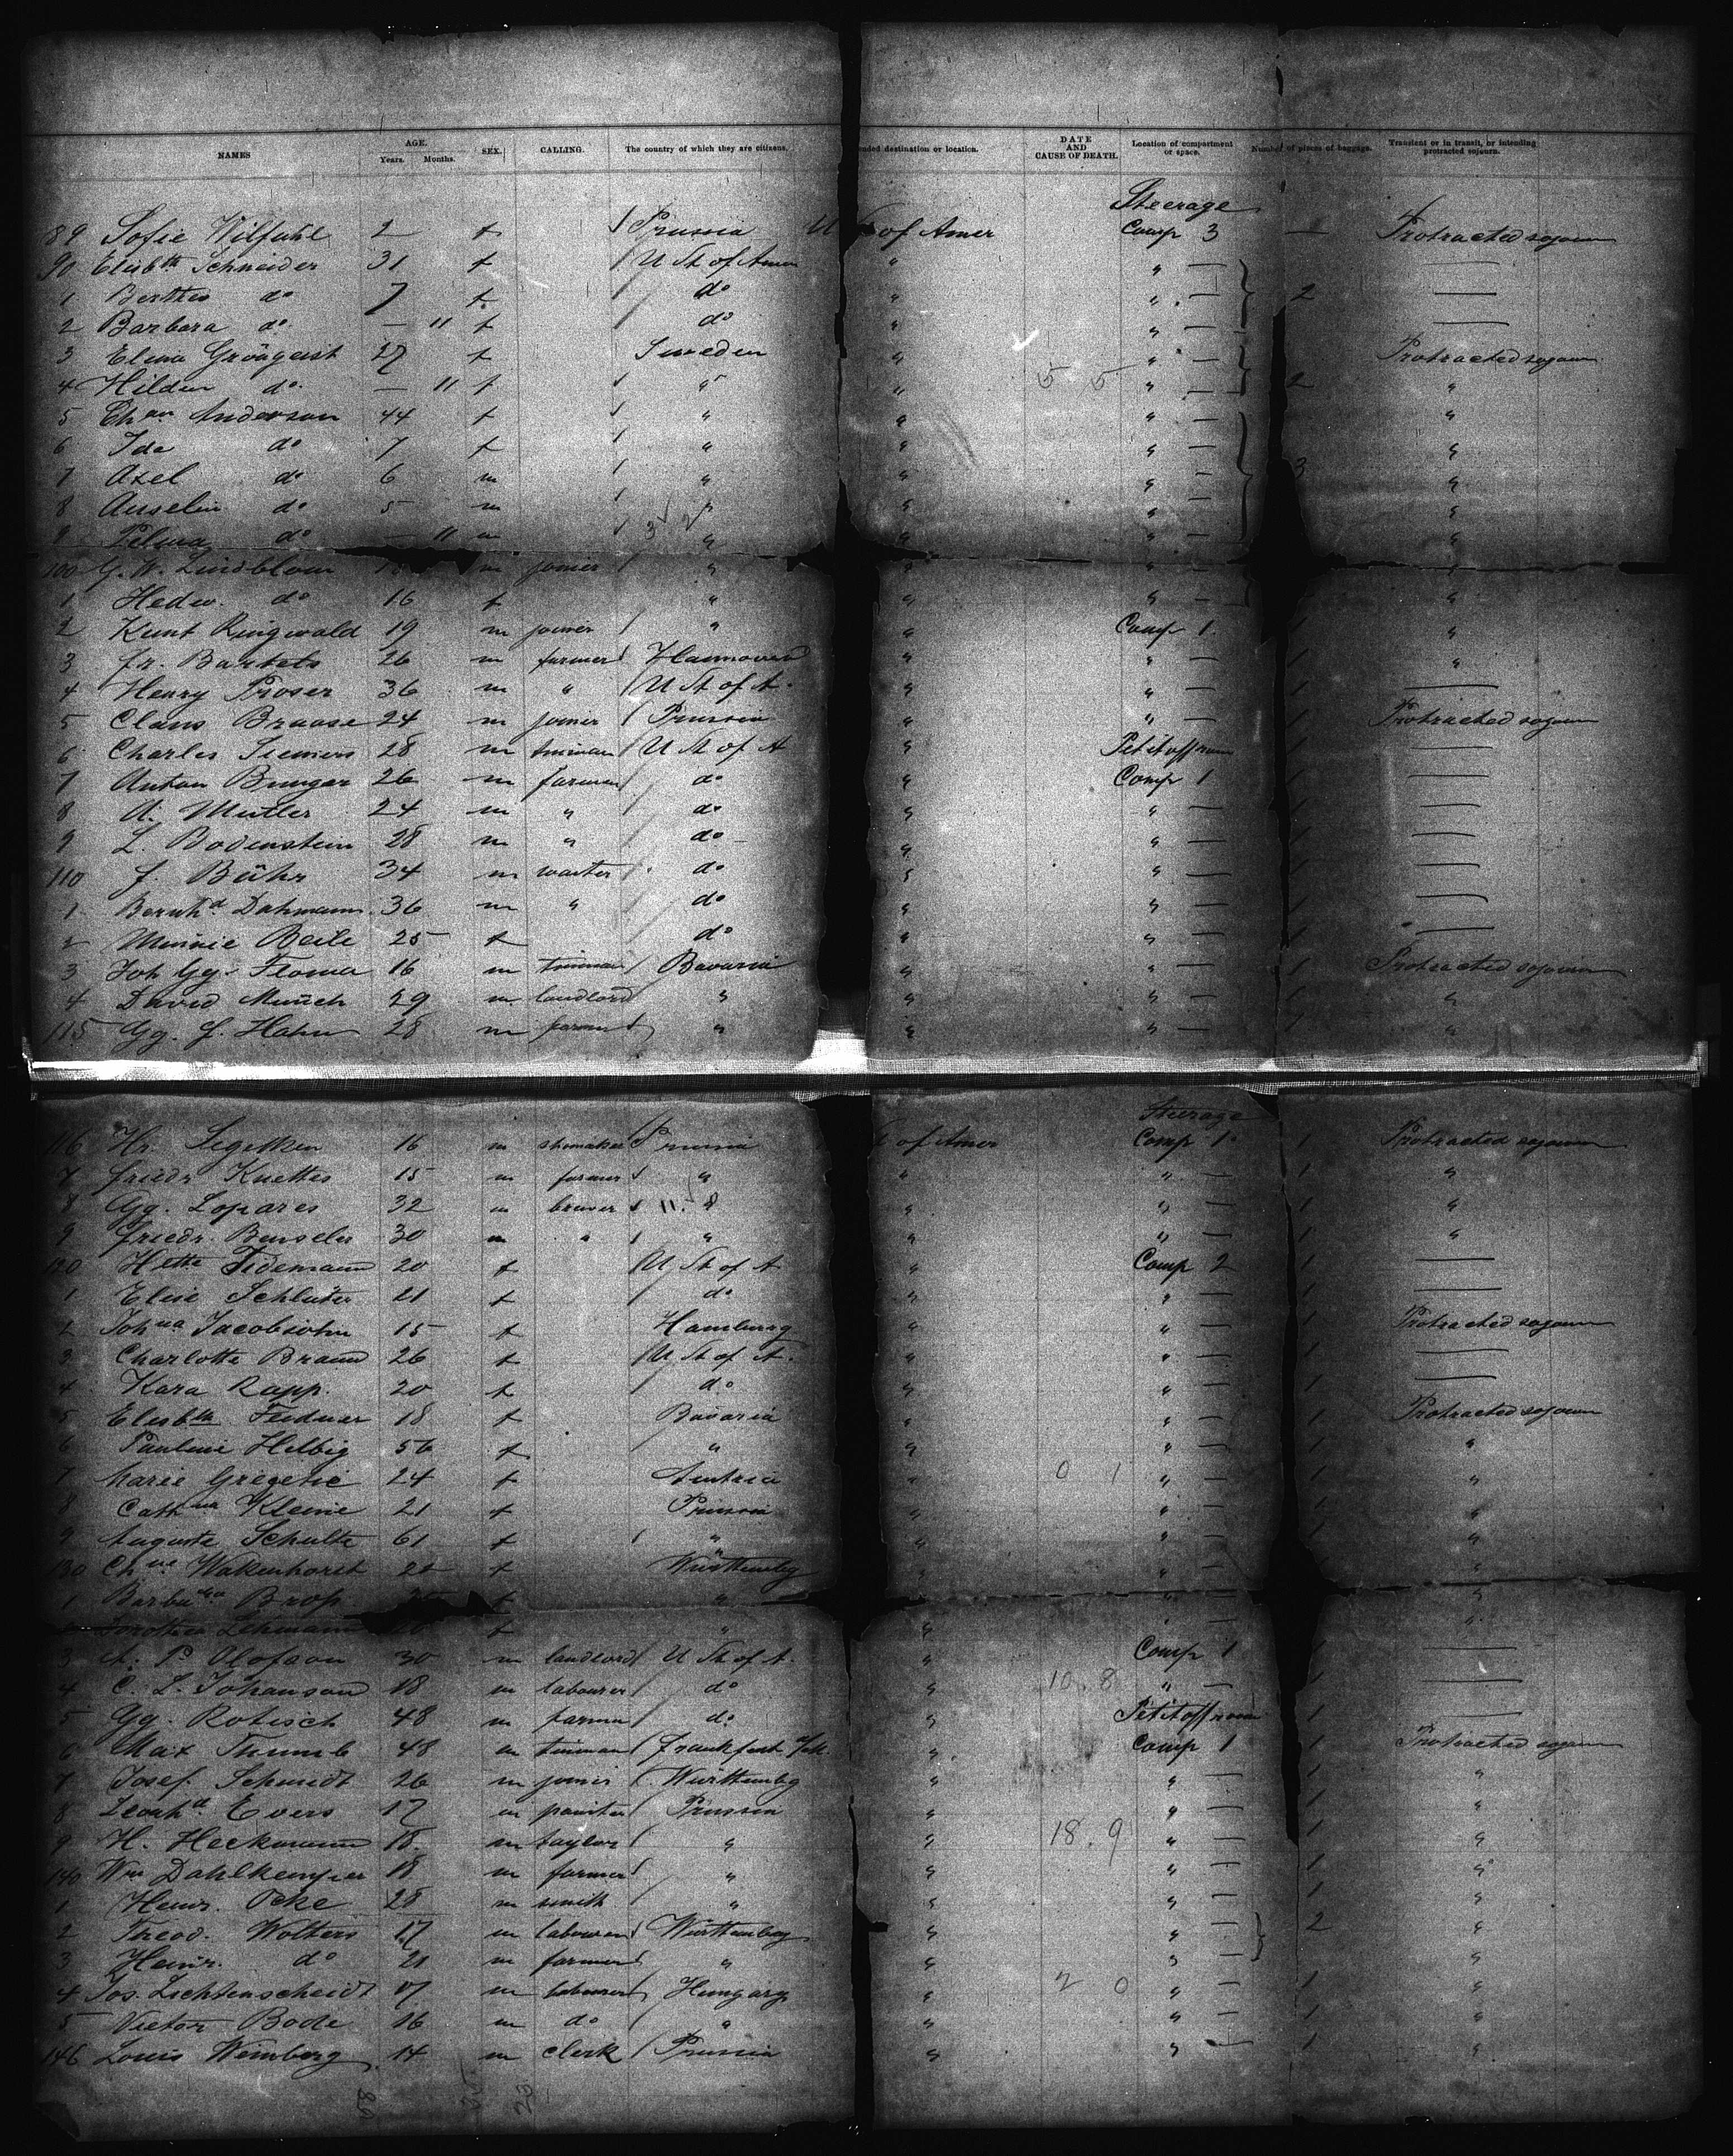 NAMES AGE. Years. Months. SEX. CALLING. The country of which they are citizens. ended destination or location. DATE AND CAUSE OF DEATH. Location of compartment or space. Number of pieces of baggage. Transient or in transit, or intending protracted sojourn.
Steerage
89 Sofie Wilfuhl 2 f Prussia U of Amer Comp 3 — Protracted sojourn
90 Elisbth Schneider 31 f U St of Amer " " — —
1 Bertha do 7 f do " " — 2 —
2 Barbara do — 11 f do " " — —
3 Elina Grönqvist 27 f Sweden " " — Protracted sojourn
4 Hilda do — 11 f " " 5 5 " — 2 "
5 Anderson 44 f " " " — "
6 Ida do 7 f " " " — "
7 Axel do 6 m " " " — 3 "
8 do 5 m " " " — "
9 do — 11 m 3 2 " " " — "
100 G. W. Lindblom m joiner " " " — "
1 Hedw. do 16 f " " " — "
2 Knut Ringwald 19 m joiner " " Comp 1 1 "
3 Fr. Bartels 26 m farmer Hannover " " — 1 "
4 Henry Proser 36 m " U St of A. " " — 1 —
5 Claus Braase 24 m joiner Prussia " " — 1 Protracted sojourn
6 Charles Siemers 28 m tinman U St of A " 1 —
7 Anton Bunger 26 m farmer do " Comp 1 1 —
8 A. Mutler 24 m " do " " — 1 —
9 L. Bodenstein 28 m " do " " — 1 —
110 F. Bühr 34 m waiter do " " — 1 —
1 Bernhd Dahmann 36 m " do " " — 1 —
2 Minnie Beile 25 f do " " — 1 —
3 Joh Gg. 16 m tinman Bavaria " " — 1 Protracted sojourn
4 David Münch 29 m landlord " " " — 1 "
115 Gg. J. Hahn 28 m farmer " " " — 1 "
Steerage
116 Hr. Segelken 16 m shomaker Prussia of Amer Comp 1 1 Protracted sojourn
7 Friedr Knettes 15 m farmer " " " — 1 "
8 Gg. Lopares 32 m brewer 11. 8 " " — 1 "
9 Friedr. 30 m " " " " — 1 "
120 Hette Tidemann 20 f U St of A " Comp 2 1 —
1 Elise Schlüter 21 f do " " — 1 —
2 Johna Jacobsohn 15 f Hamburg " " — 1 Protracted sojourn
3 Charlotte Braun 26 f U St of A. " " — 1 —
4 Kara Rapp. 20 f do " " — 1 —
5 Elisbth 18 f Bavaria " " — 1 Protracted sojourn
6 Pauline Helbig 56 f " " " — 1 "
7 Marie Gregetic 24 f Austria " 0 1 " — 1 "
8 Cathna Kleine 21 f Prussia " " — 1 "
9 Auguste Schulte 61 f " " " — 1 "
130 Chne Wakenhorst 22 f Württembg " " — "
1 Barbara Brop. f " " " — "
2 Dorothea Lehmann 20 f " " " — "
3 A. P. Olofson 30 m landlord U St of A. " Comp 1 1 —
4 C. L. Johanson 18 m labourer do " 10. 8 " — 1 —
5 Gg. Rotisch 48 m farmer do " 1 —
6 Max Thumb 48 m tinman Frankfurt " Comp 1 1 Protracted sojourn
7 Josef Schmidt 26 m joiner Württembg " " — 1 "
8 Leonhd Evers 17 m painter Prussia " " — 1 "
9 H. Heckmann 18. m taylor " " 18. 9 " — 1 "
140 Wm Dahlkemper 18 m farmer " " " — 1 "
1 Heinr. Ocke 28 m smith " " " — 1 "
2 Theod. Wolters 17 m labourer Württembg " " — 2 "
3 Heinr. do 21 m farmer " " " — "
4 Jos. Lichtenscheidt 17 m labourer Hungary " 2 0 " — 1 "
5 Victor Bode 16 m do " " " — 1 "
146 Louis Weinberg 14 m clerk Prussia " " — 1 "